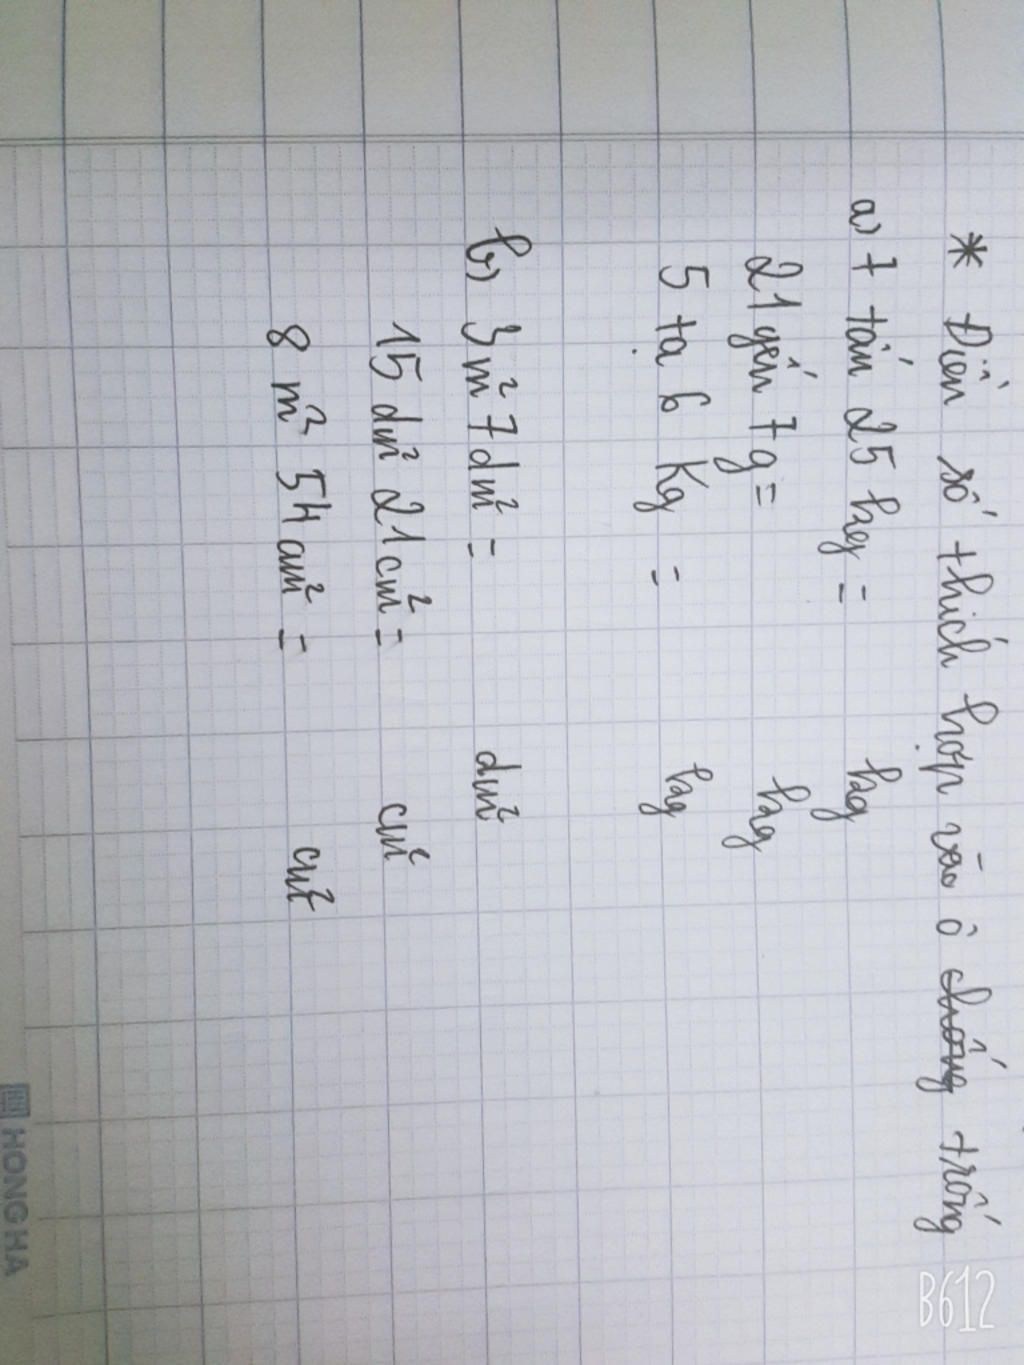 * Điền số thích hợp vào ô chống trống
a) 7 tấn 25 kg = kg
21 yến 7g = kg
5 tạ 6 Kg = kg
b) 3m² 7dm² = dm²
15 dm² 21cm² = cm²
8 m² 54 cm² = cm²
HONG HA
B612